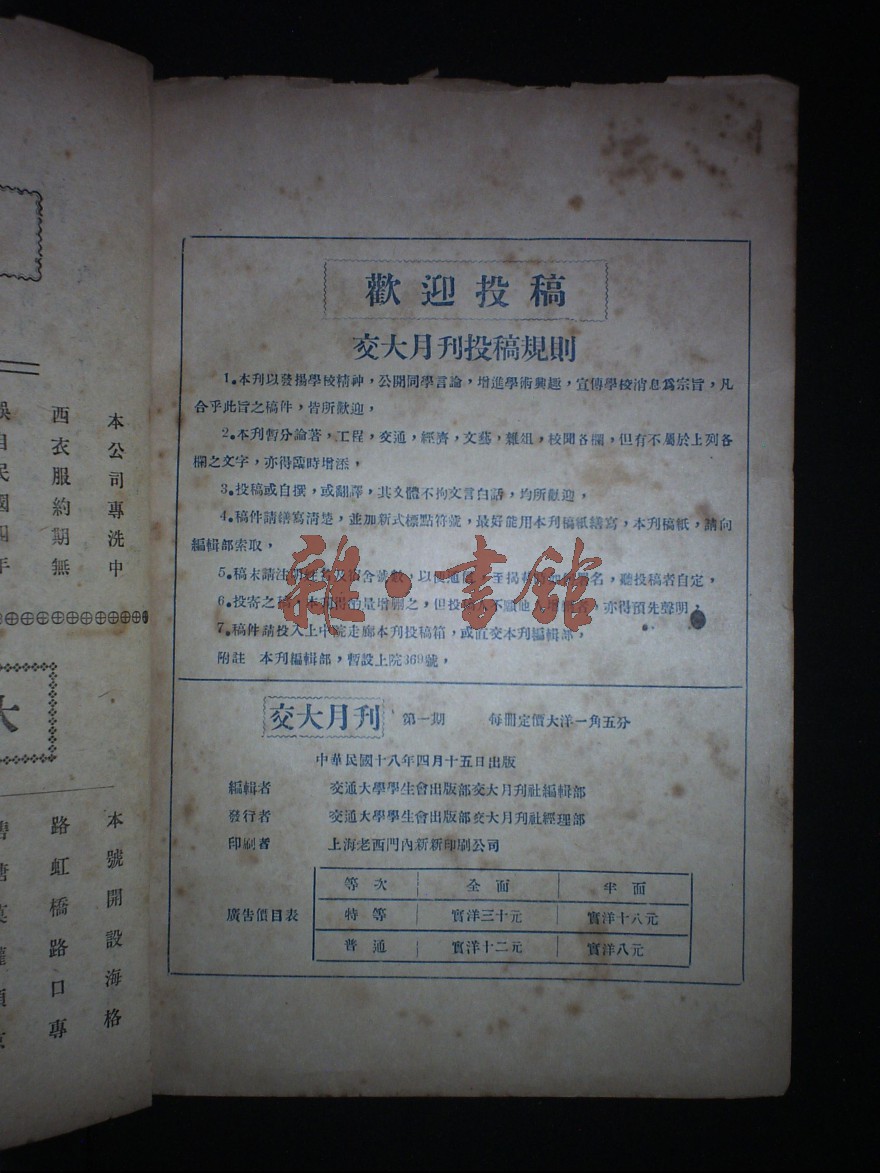 歡迎投稿
交大月刊投稿規則
1。本刊以發揚學校精神，公開同學言論，增進學術興趣，宣傳學校消息爲宗旨，凡
合乎此旨之稿件，皆所歡迎，
2。本刊暫分論著，工程，交通，經濟，文藝，雜俎，校聞各欄，但有不屬於上列各
欄之文字，亦得臨時增添，
3。投稿或自撰，或翻譯，其文體不拘文言白話，均所歡迎，
4。稿件請繕寫清楚，並加新式標點符號，最好能用本刊稿紙繕寫，本刊稿紙，請向
編輯部索取，
5。稿末請注明姓名及宿舍號數，以便通信，至揭載時如何署名，聽投稿者自定，
6。投寄之稿，本刊得酌量增删之，但投稿人不願他人增删者，亦得預先聲明，
7。稿件請投入上中院走廊本刊投稿箱，或直交本刊編輯部，
附註 本刊編輯部，暫設上院369號，
交大月刊 第一期 每冊定價大洋一角五分
中華民國十八年四月十五日出版
編輯者 交通大學學生會出版部交大月刊社編輯部
發行者 交通大學學生會出版部交大月刊社經理部
印刷者 上海老西門內新新印刷公司
廣告價目表
等次 全面 半面
特等 實洋三十元 實洋十八元
普通 實洋十二元 實洋八元
本公司專洗中
西衣服約期無
誤自民國四年
大
本號開設海格
路虹橋路口專
雜·書館